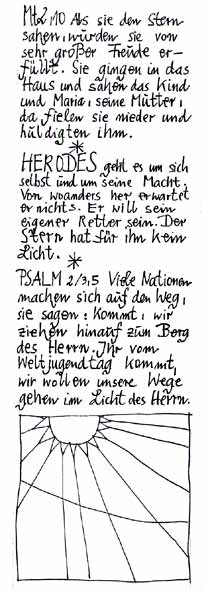 Mt 2,10 Als sie den Stern
sahen, wurden sie von
sehr großer Freude er-
füllt. Sie gingen in das
Haus und sahen das Kind
und Maria, seine Mutter,
da fielen sie nieder und
huldigten ihm.
HERODES geht es um sich
selbst und um seine Macht.
Von woanders her erwartet
er nichts. Er will sein
eigener Retter sein. Der
Stern hat für ihn kein
Licht.
PSALM 2/3,5 Viele Nationen
machen sich auf den Weg,
sie sagen: Kommt, wir
ziehen hinauf zum Berg
des Herrn. Ihr vom
Weltjugendtag kommt,
wir wollen unsere Wege
gehen im Licht des Herrn.